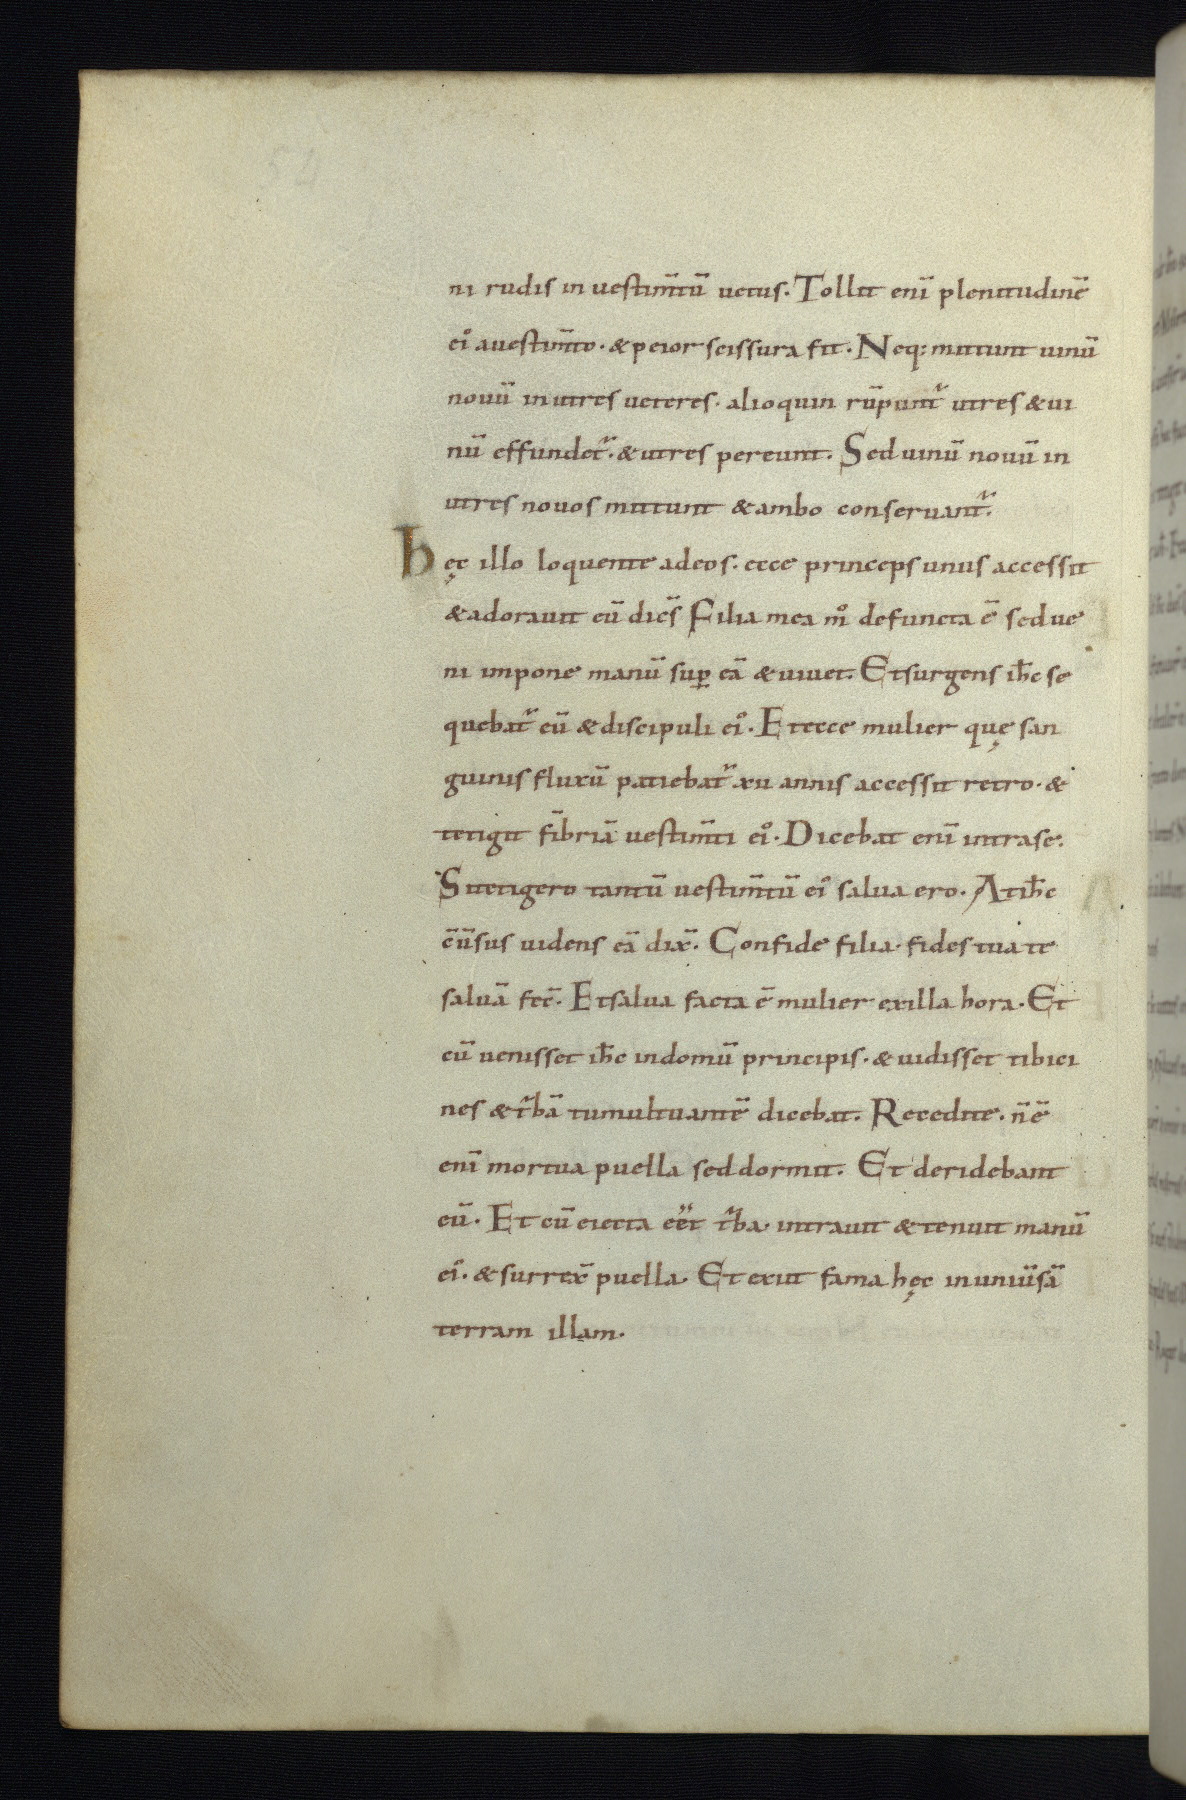 ni rudis in uestim̅tu̅ uetus. Tollit eni̅ plenitudine̅
ei᷒ auestim̅to. & peior scissura fit. Neq; mittunt uinu̅
nouu̅ inutres ueteres. alioquin ru̅punt᷑ utres & ui
nu̅ effundet᷑. & utres pereunt. Sed uinu̅ nouu̅ in
utres nouos mittunt & ambo conseruant᷑.
hęc illo loquente adeos. ecce princeps unus accessit
& adorauit eu̅ dice̅s Filia mea m̊ defuncta e̅ sed ue
ni impone manu̅ suꝑ ea̅ & uiuet. Et surgens ih̅c se
quebat᷑ eu̅ & discipuli ei᷒. Et ecce mulier quę san
guinis fluxu̅ patiebat᷑ xii annis accessit retro. &
tetigit fi̅bria̅ uestim̅ti ei᷒. Dicebat eni̅ intrase.
Si tetigero tantu̅ uestim̅tu̅ ei᷒ salua ero. At ih̅c
c̅u̅sus uidens ea̅ dix̅. Confide filia. fides tua te
salua̅ fec̅. Et salua facta e̅ mulier exilla hora. Et
cu̅ uenisset ih̅c indomu̅ principis. & uidisset tibici
nes & t᷑ba̅ tumultuante̅ dicebat. Recedite. n̅ e̅
eni̅ mortua puella sed dormit. Et deridebant
eu̅. Et cu̅ eiecta ee̅t t᷑ba. intrauit & tenuit manu̅
ei᷒. & surrex̅ puella. Et exiit fama hęc in uniu̅sa̅
terram illam.